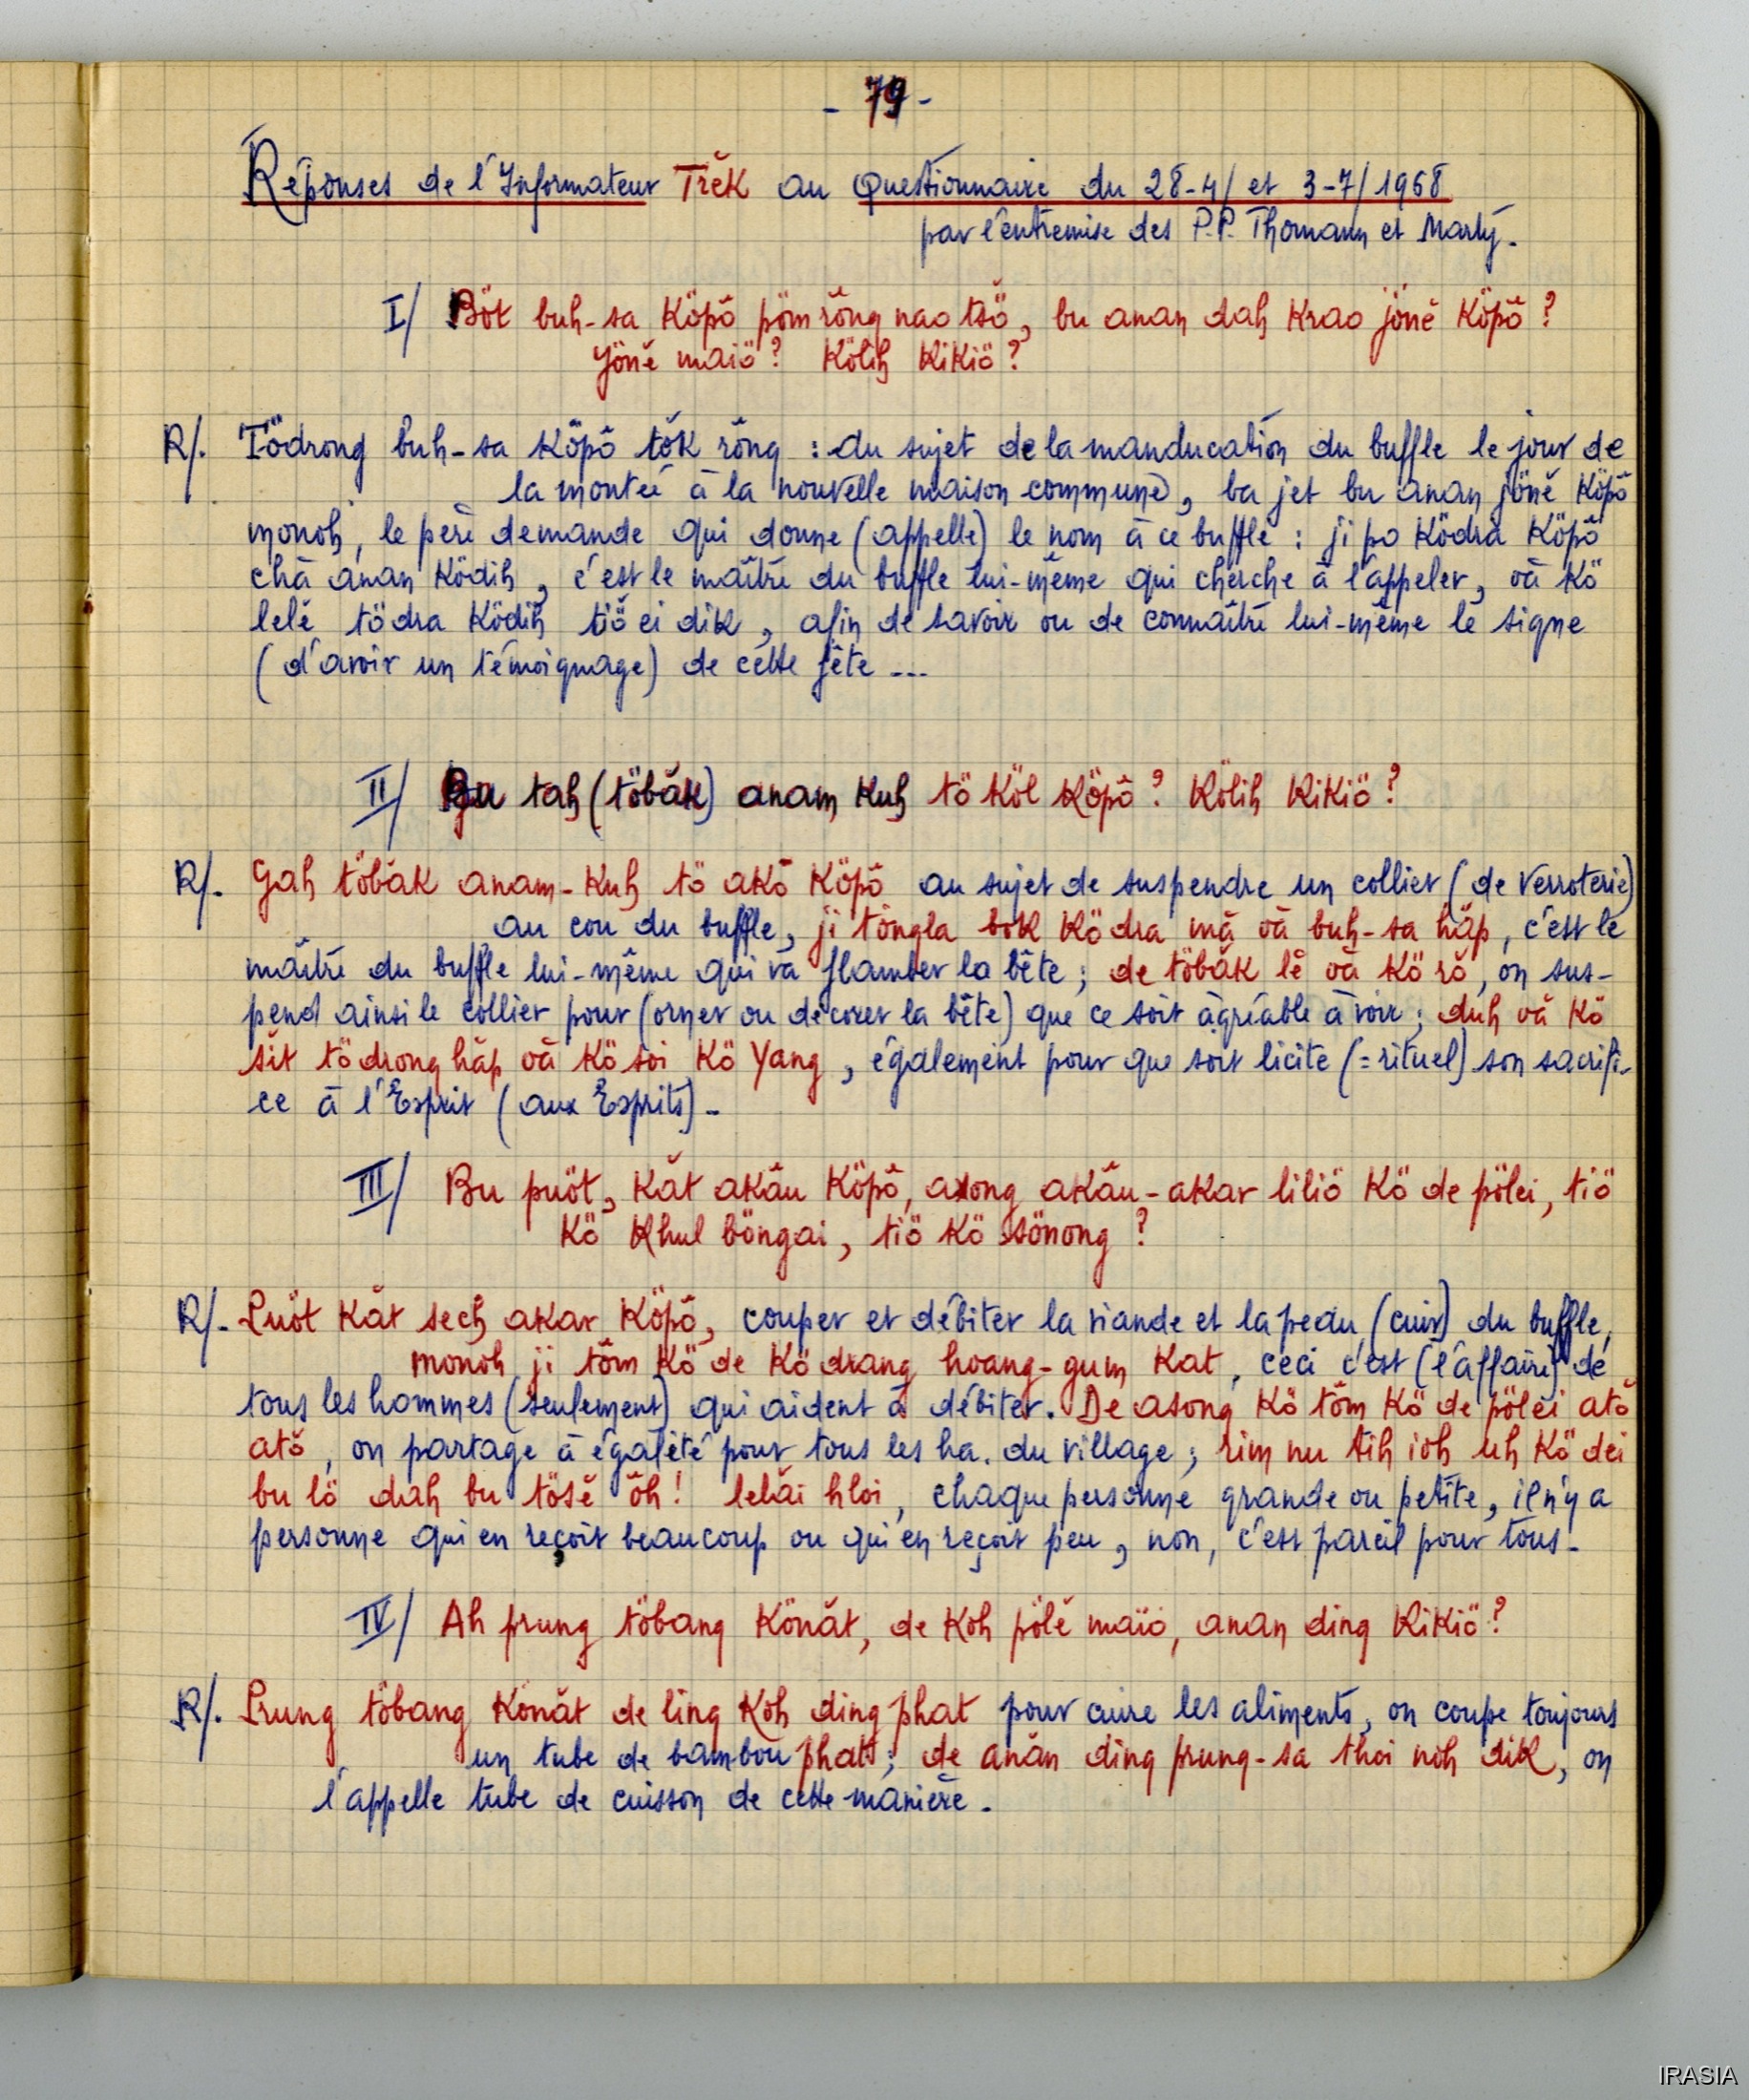 - 79 -
Réponses de l'Informateur Trĕk au Questionnaire du 28-4/ et 3-7/1968
par l'entremise des P.P. Thomann et Marty.
I/ Böt buh-sa Köpô pöm rông nao tsö, bu anan dah Krao jönĕ Köpô?
Jönĕ maiö? Kölih KiKiö?
R/. Tödrong buh-sa Köpô tŏk rông : du sujet de la manducation du buffle le jour de
la montée à la nouvelle maison commune, ba jet bu anan jönĕ Köpô
monoh, le père demande qui donne (appelle) le nom à ce buffle : ji po Ködra Köpô
chă anan Ködih, c'est le maître du buffle lui-même qui cherche à l'appeler, vă Kö
lelĕ tödra Ködih tiö ei dik, afin de savoir ou de connaître lui-même le signe
(d'avoir un témoignage) de cette fête ...
II/ tah (töbăk) anam Kuh tö Köl Köpô? Kölih KiKiö?
R/. Gah töbăk anam-Kuh tö aKŏ Köpô au sujet de suspendre un collier (de verroterie)
au cou du buffle, ji töngla bok Ködra mă vă buh-sa hăp, c'est le
maître du buffle lui-même qui va flamber la bête; de töbăk lĕ vă Kö rŏ, on sus-
pend ainsi le collier pour (orner ou décorer la bête) que ce soit agréable à voir; duh vă Kö
sĭt tödrong hăp vă Kö soi Kö Yang, également pour que soit licite (= rituel) son sacrifi-
ce à l'Esprit (aux Esprits).
III/ Bu puöt, Kăt aKău Köpô, axong aKău-aKar liliö Kö de pölei, tiö
Kö Khul böngai, tiö Kö sönong?
R/. Puöt Kăt sech aKar Köpô, couper et débiter la viande et la peau (cuir) du buffle,
monoh ji tŏm Kö de Ködrang hoang-gum Kat, ceci c'est (l'affaire) de
tous les hommes (seulement) qui aident à débiter. De asong Kö tŏm Kö de pölei atŏ
atŏ, on partage à égalité pour tous les ha. du village; rim nu tih ioh uh Kö dei
bu lö dah bu tösĕ ôh! lelăi hloi, chaque personne grande ou petite, il n'y a
personne qui en reçoit beaucoup ou qui en reçoit peu, non, c'est pareil pour tous.
IV/ Ah prung töbang Könăt, de Koh pölĕ maïö, anan ding KiKiö?
R/. Prung töbang Könăt de ling Koh ding phat pour cuire les aliments, on coupe toujours
un tube de bambou phat; de anăn ding prung-sa thoi noh dik, on
l'appelle tube de cuisson de cette manière.
IRASIA